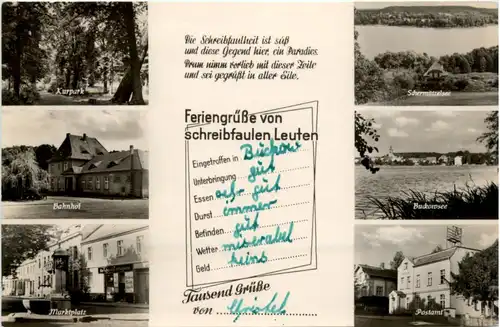 Die Schreibfaulheit ist süß
und diese Gegend hier, ein Paradies.
Drum nimm vorlieb mit dieser Zeile
und sei gegrüßt in aller Eile.
Kurpark
Schermützelsee
Feriengrüße von
schreibfaulen Leuten
Eingetroffen in Buckow
Unterbringung gut
Essen sehr gut
Durst immer
Befinden gut
Wetter miserabel
Geld keins
Bahnhof
Buckowsee
Tausend Grüße
von
Marktplatz
Postamt